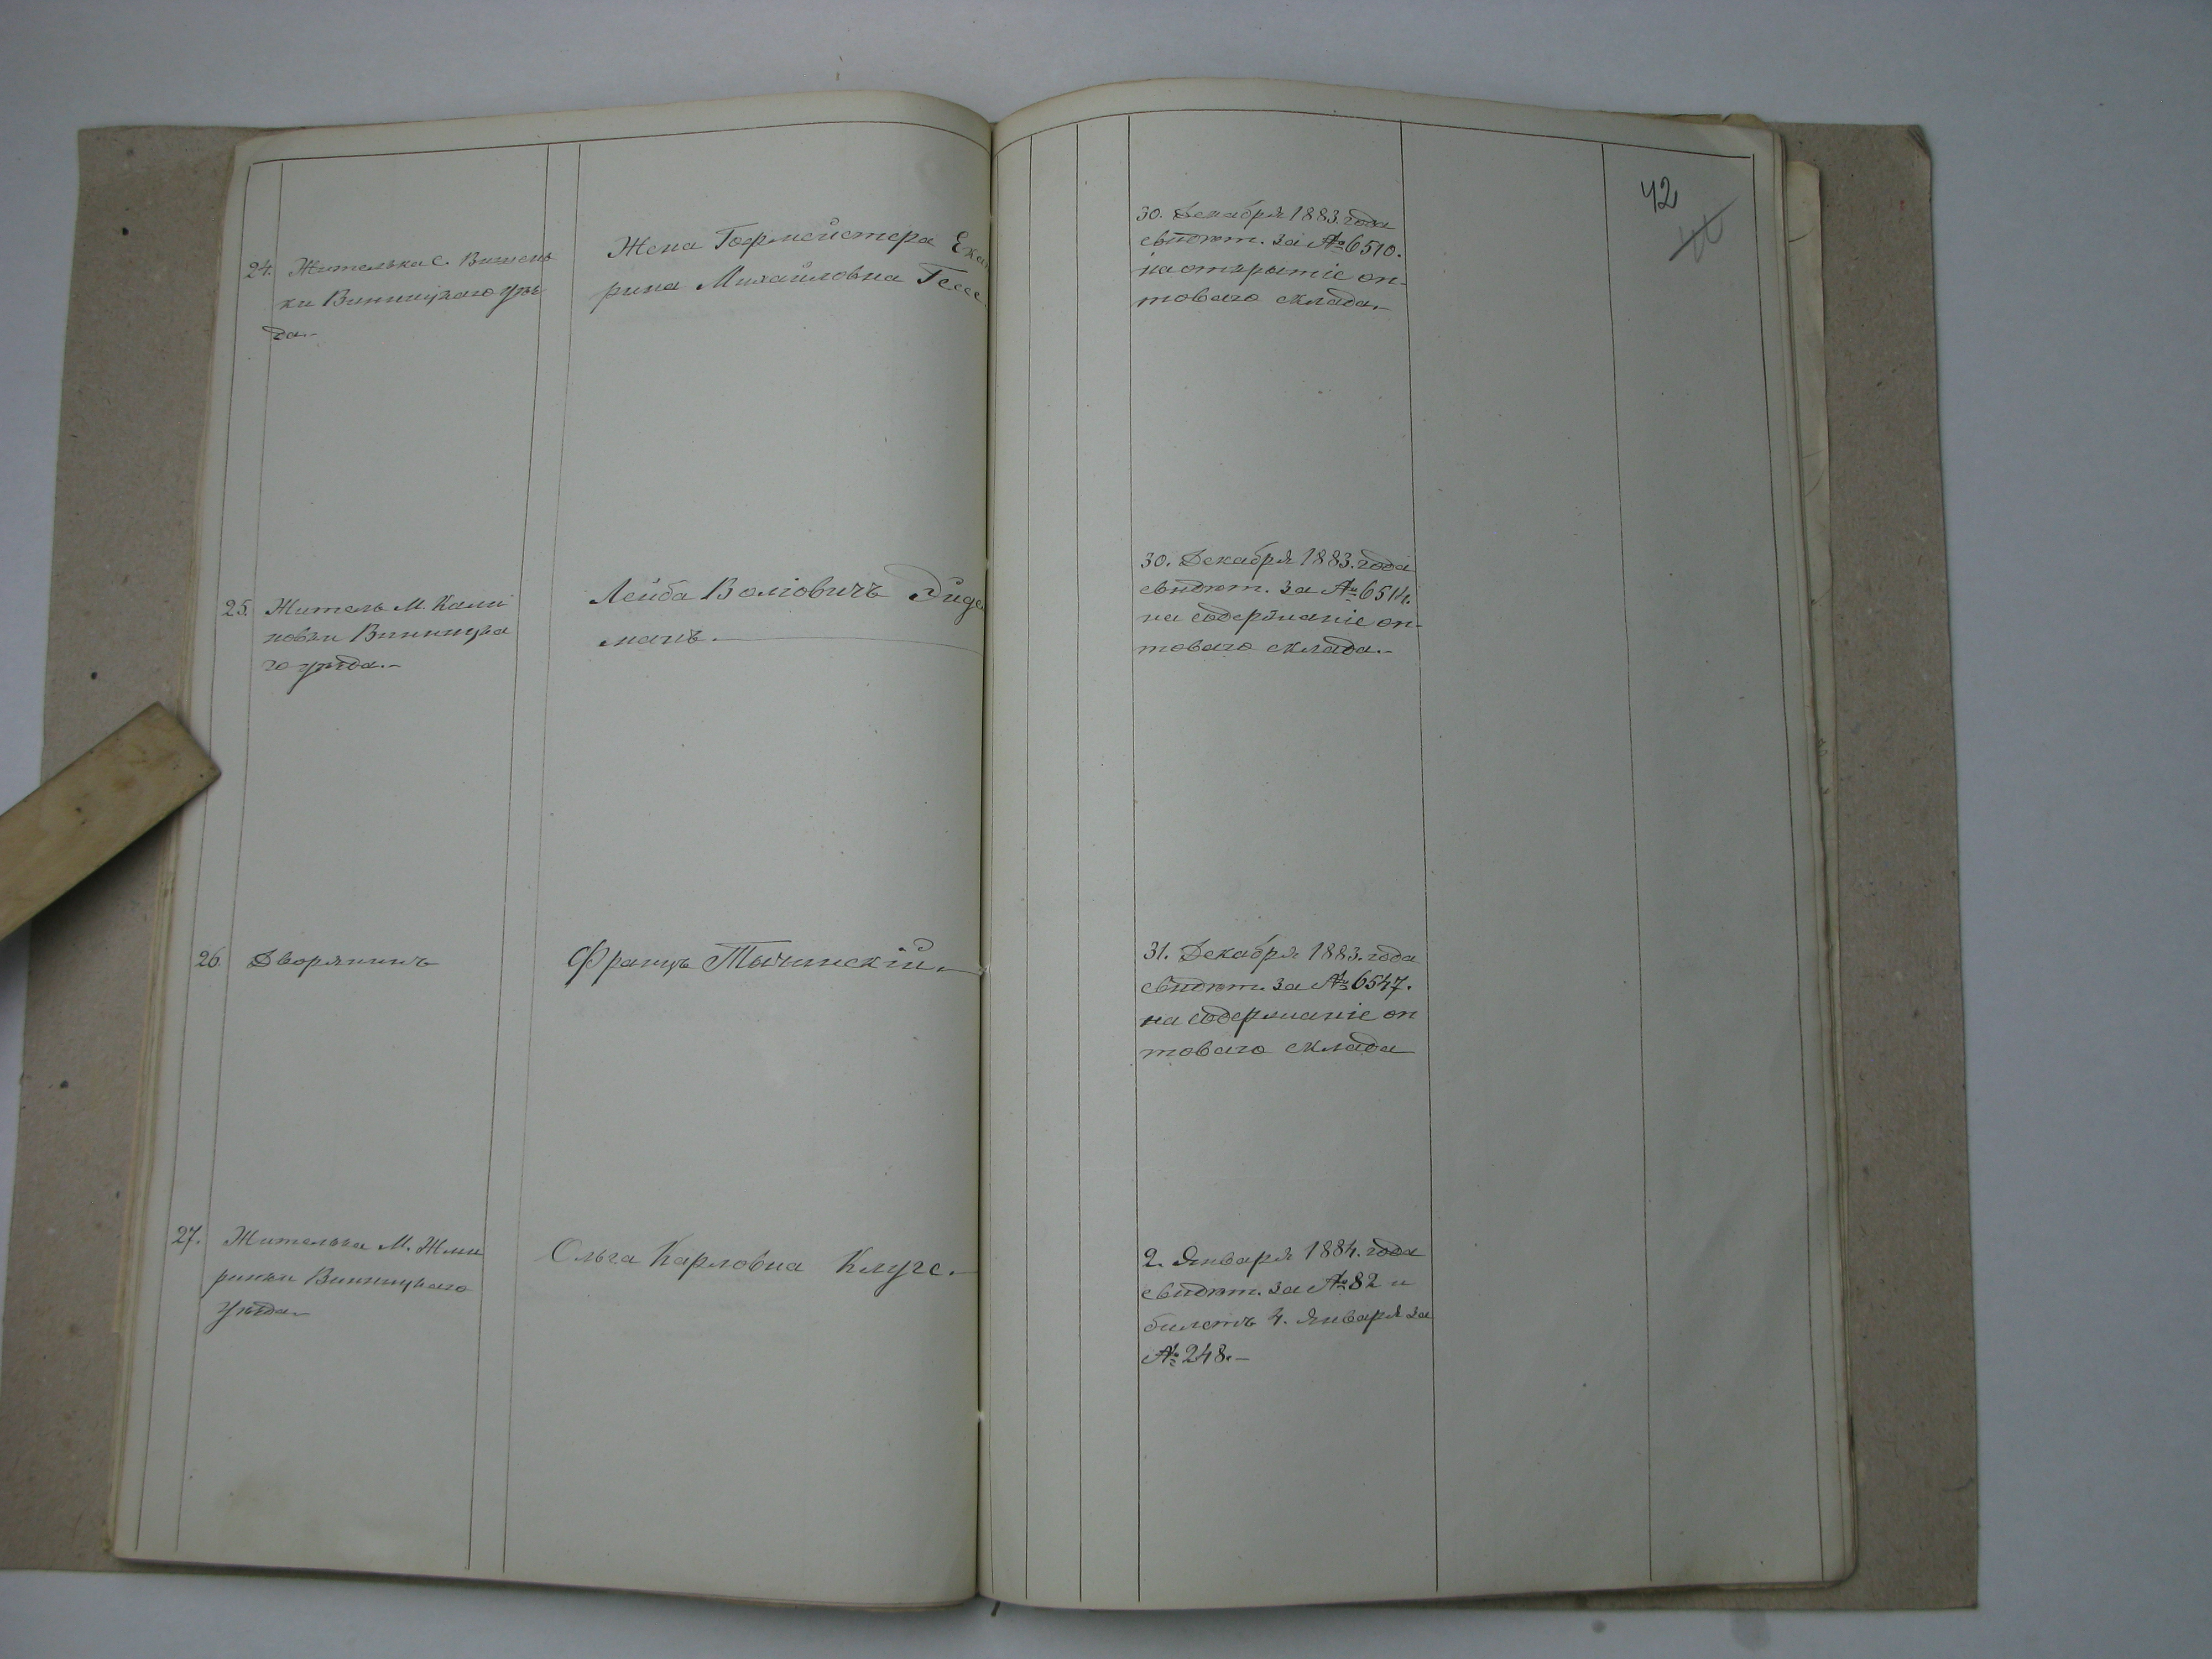 42
24. Жителька с. Вишень
ки Винницкаго уѣз
да.–
Жена Гофмейстера Ека
рина Михайловна Гессе
30. Декабря 1883. года
свидѣт. за № 6510.
на открытіе оп-
товаго склада.–
25. Житель М. Кали
новки Винницка
го уѣзда.–
Лейба Воліовичъ Зиде
манъ.
30. Декабря 1883. года
свидѣт. за № 6514.
на содержаніе оп-
товаго склада.–
26. Дворянинъ
Францъ Тычинскій.–
31. Декабря 1883. года
свидѣт. за № 6547.
на содержаніе оп
товаго склада
27. Жителька М. Жме
ринки Винницкаго
уѣзда.–
Ольга Карловна Клуге.–
2. Января 1884. года
свидѣт. за № 82 и
билетъ 4. Января за
№ 248.–